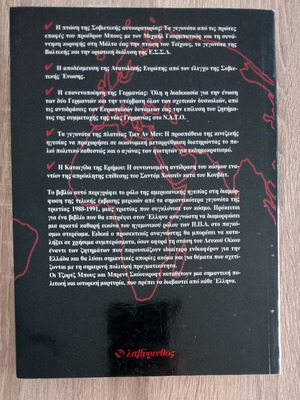 ✓ Η πτώση της Σοβιετικής αυτοκρατορίας: Τα γεγονότα από τις πρώτες
επαφές του προέδρου Μπους με τον Μιχαήλ Γκορμπατσώφ και τη συνά-
ντηση κορυφής στη Μάλτα έως την πτώση του Τείχους, τα γεγονότα της
Βαλτικής και την οριστική διάλυση της Ε.Σ.Σ.Δ.
✓ Η αποδέσμευση της Ανατολικής Ευρώπης από τον έλεγχο της Σοβιε-
τικής Ένωσης.
✓ Η επανενοποίηση της Γερμανίας: Όλη η διαδικασία για την ένωση
των δύο Γερμανιών και την υπέρβαση όλων των σχετικών δυσκολιών, από
τις αντιδράσεις των Ευρωπαίων δυναμεων έως την επίλυση του ζητήμα-
τος της συμμετοχής της νέας Γερμανίας στο Ν.Α.Τ.Ο.
✓ Τα γεγονότα της πλατείας Τιεν Αν Μεν: Η προσπάθεια της κινεζικής
ηγεσίας να προχωρήσει σε οικονομική μεταρρύθμιση διατηρώντας το πα-
λιό πολιτικό καθεστώς και ο αγώνας των φοιτητών για εκδημοκρατισμό.
✓ Η Καταιγίδα της Ερήμου: Η συντονισμένη αντίδραση του κόσμου ενα-
ντίον της απρόκλητης επίθεσης του Σαντάμ Χουσεΐν κατά του Κουβέιτ.
Το βιβλίο αυτό περιγράφει το ρόλο της αμερικανικής ηγεσίας στη διαμόρ-
φωση της τελικής έκβασης μερικών από τα σημαντικότερα γεγονότα της
τριετίας 1988-1991, μιας τριετίας που συγκλόνισε τον κόσμο. Πρόκειται
για ένα βιβλίο που θα επιτρέψει στον Έλληνα αναγνώστη να διαμορφώσει
μια αρκετά καθαρή εικόνα του ηγεμονικού ρόλου των Η.Π.Α. στο παγκό-
σμιο στερέωμα. Ειδικά ο προσεκτικός αναγνώστης θα μπορέσει να κατα-
λήξει σε χρήσιμα συμπεράσματα, όσον αφορά τη στάση του Λευκού Οίκου
έναντι των ζητημάτων που παρουσιάζουν ιδιαίτερο ενδιαφέρον για την
Ελλάδα και θα λύσει σημαντικές απορίες ακόμα και για θέματα που σχετί-
ζονται με τη σημερινή πολιτική πραγματικότητα.
Οι Τζορτζ Μπους και Μπρεντ Σκόουκροφτ καταθέτουν μια σημαντική πολιτι-
κή και ιστορική μαρτυρία, που πρέπει να διαβαστεί από κάθε Έλληνα.
λαβύρινθος